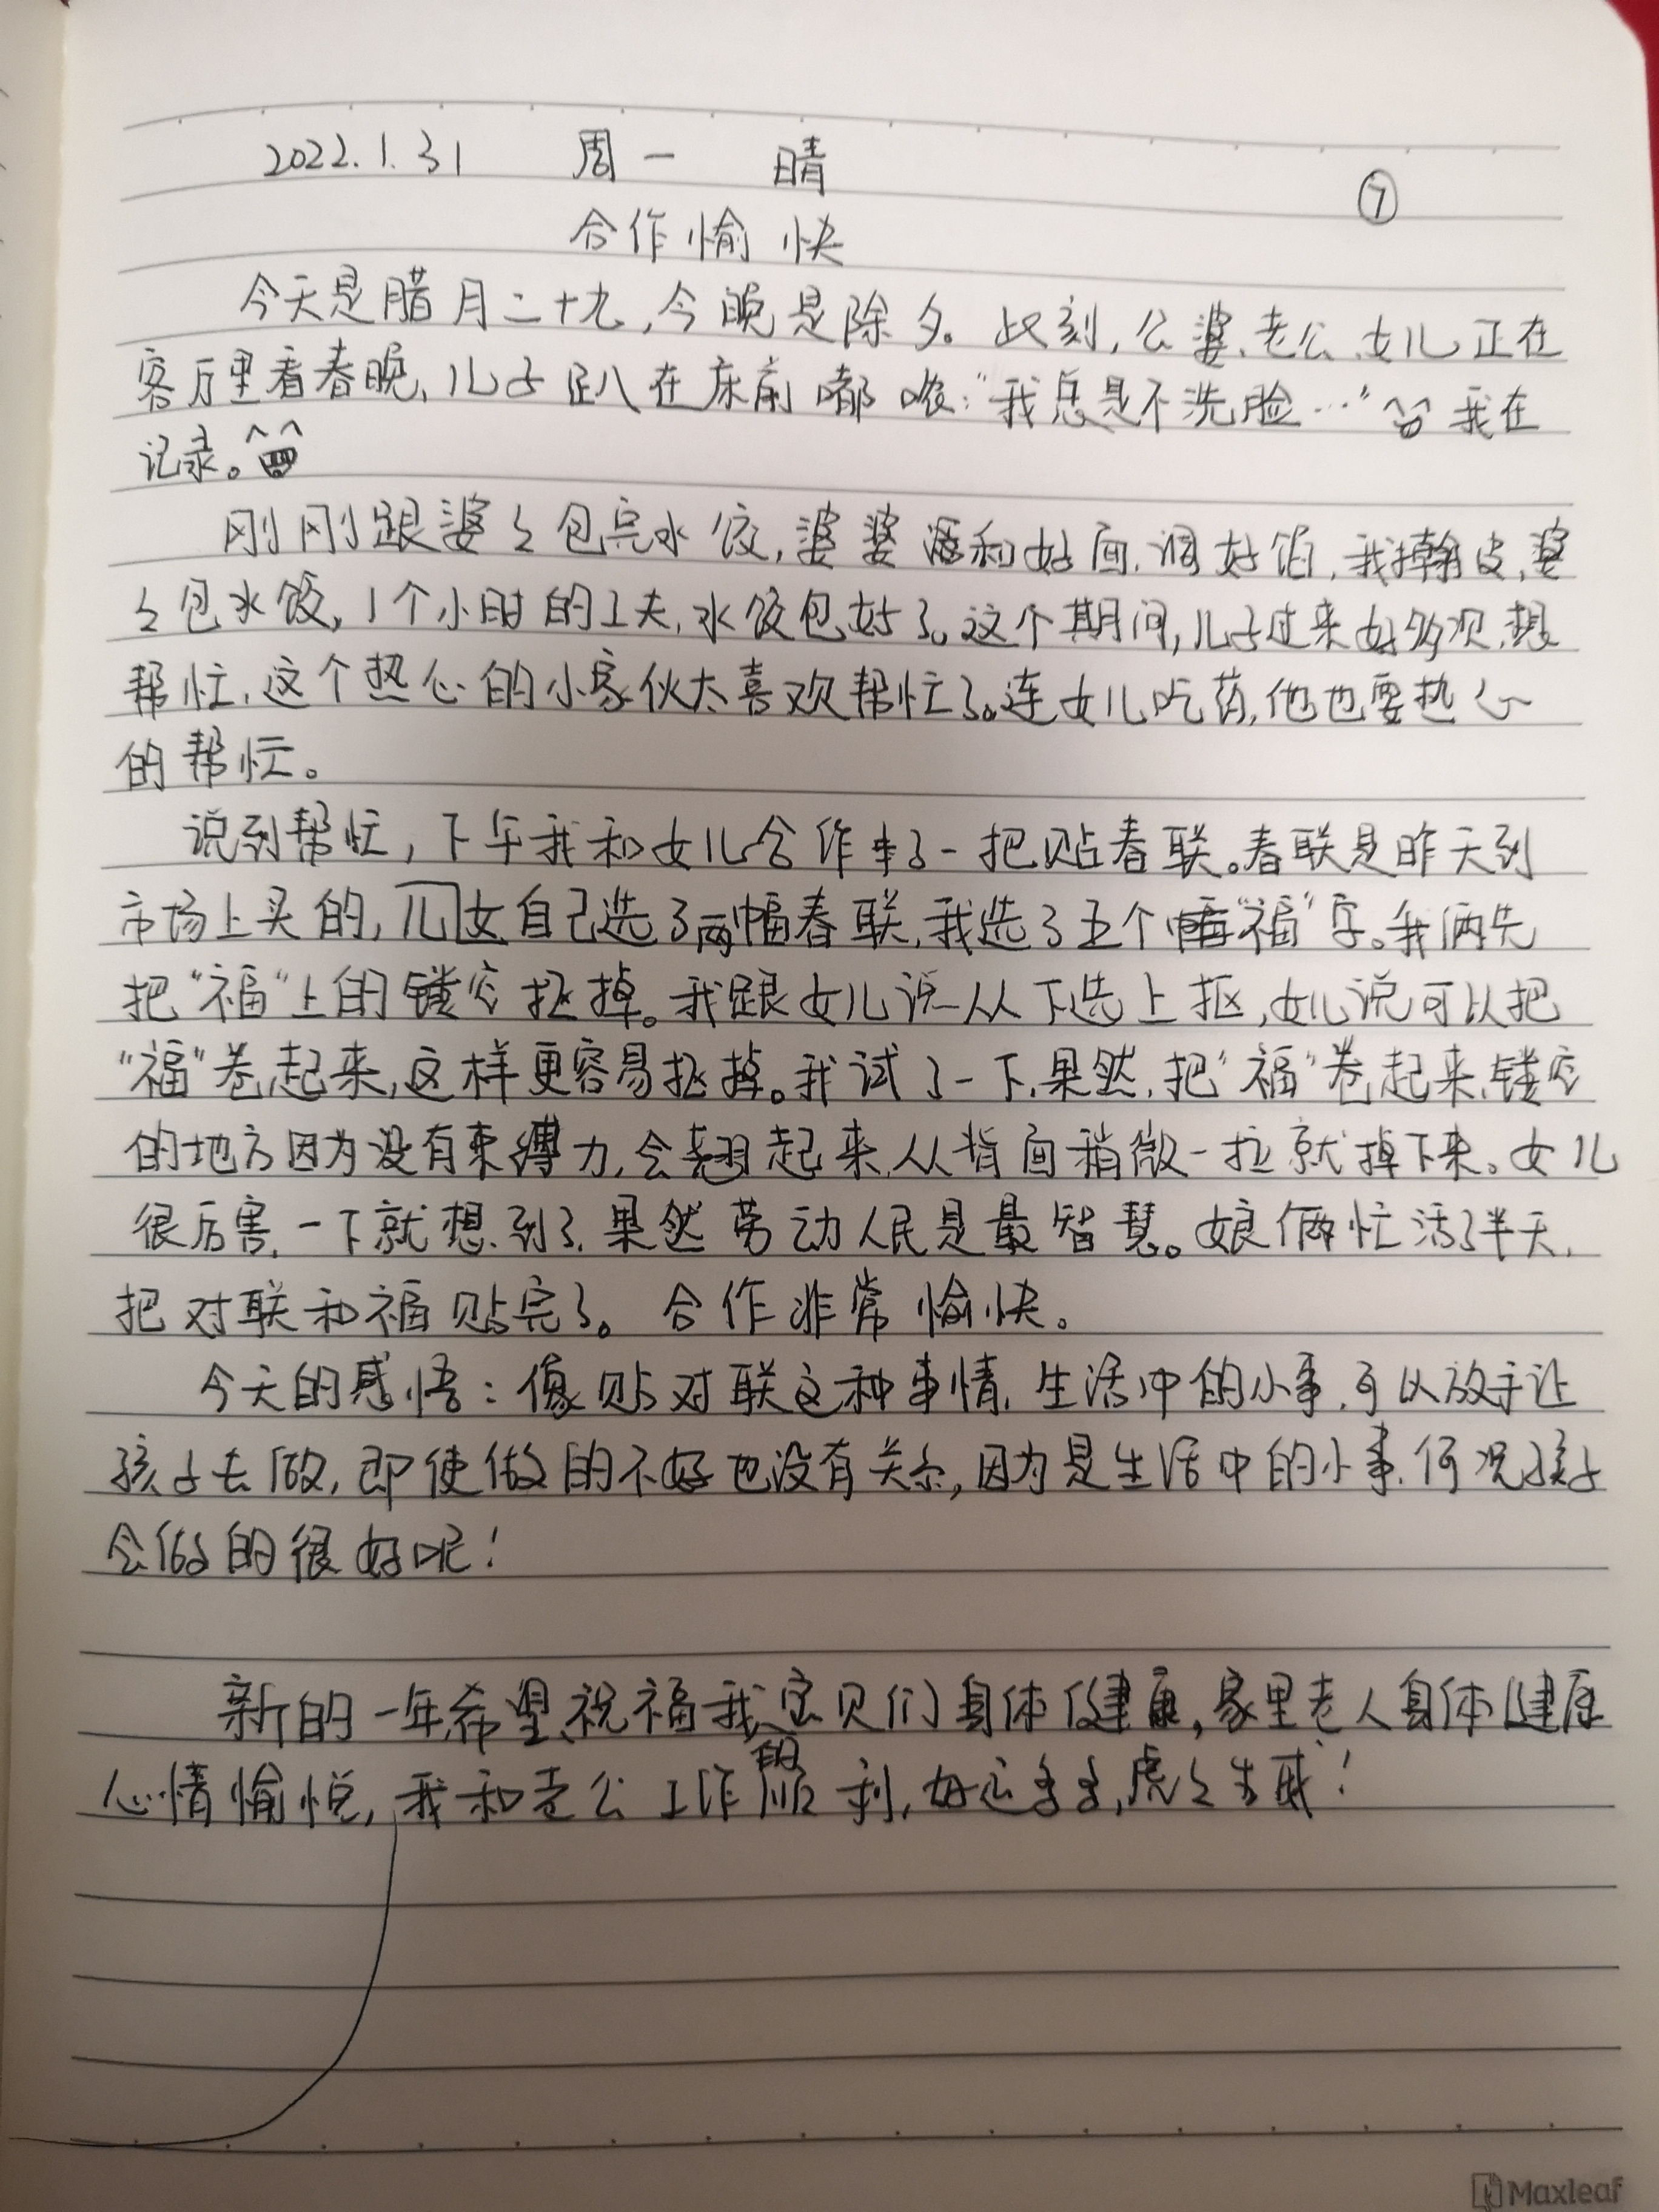 2022.1.31 周一 晴
⑦
合作愉快
今天是腊月二十九,今晚是除夕。此刻,公婆、老公、女儿正在
客厅里看春晚,儿子趴在床前嘟哝:“我总是不洗脸…”^^ 我在
记录。^^
刚刚跟婆々包完水饺,婆婆和好面、调好馅,我擀皮,婆
々包水饺,1个小时的工夫,水饺包好了。这个期间,儿子过来好多次,想
帮忙,这个热心的小家伙太喜欢帮忙了。连女儿吃药,他也要热心
的帮忙。
说到帮忙,下午我和女儿合作了一把贴春联。春联是昨天到
市场上买的,儿女自己选了两幅春联,我选了五个“福”字。我俩先
把“福”上的镂空抠掉。我跟女儿说从下选上抠,女儿说可以把
“福”卷起来,这样更容易抠掉。我试了一下,果然,把“福”卷起来,镂空
的地方因为没有束缚力,会翘起来,从背面稍微一拉就掉下来。女儿
很厉害,一下就想到了,果然劳动人民是最智慧。娘俩忙活了半天,
把对联和福贴完了。合作非常愉快。
今天的感悟:像贴对联这种事情,生活中的小事,可以放手让
孩子去做,即使做的不好也没有关系,因为是生活中的小事,何况孩子
会做的很好呢!
新的一年,希望、祝福我宝贝们身体健康,家里老人身体健康
心情愉悦,我和老公工作顺利,好运多多,虎々生威!
Maxleaf